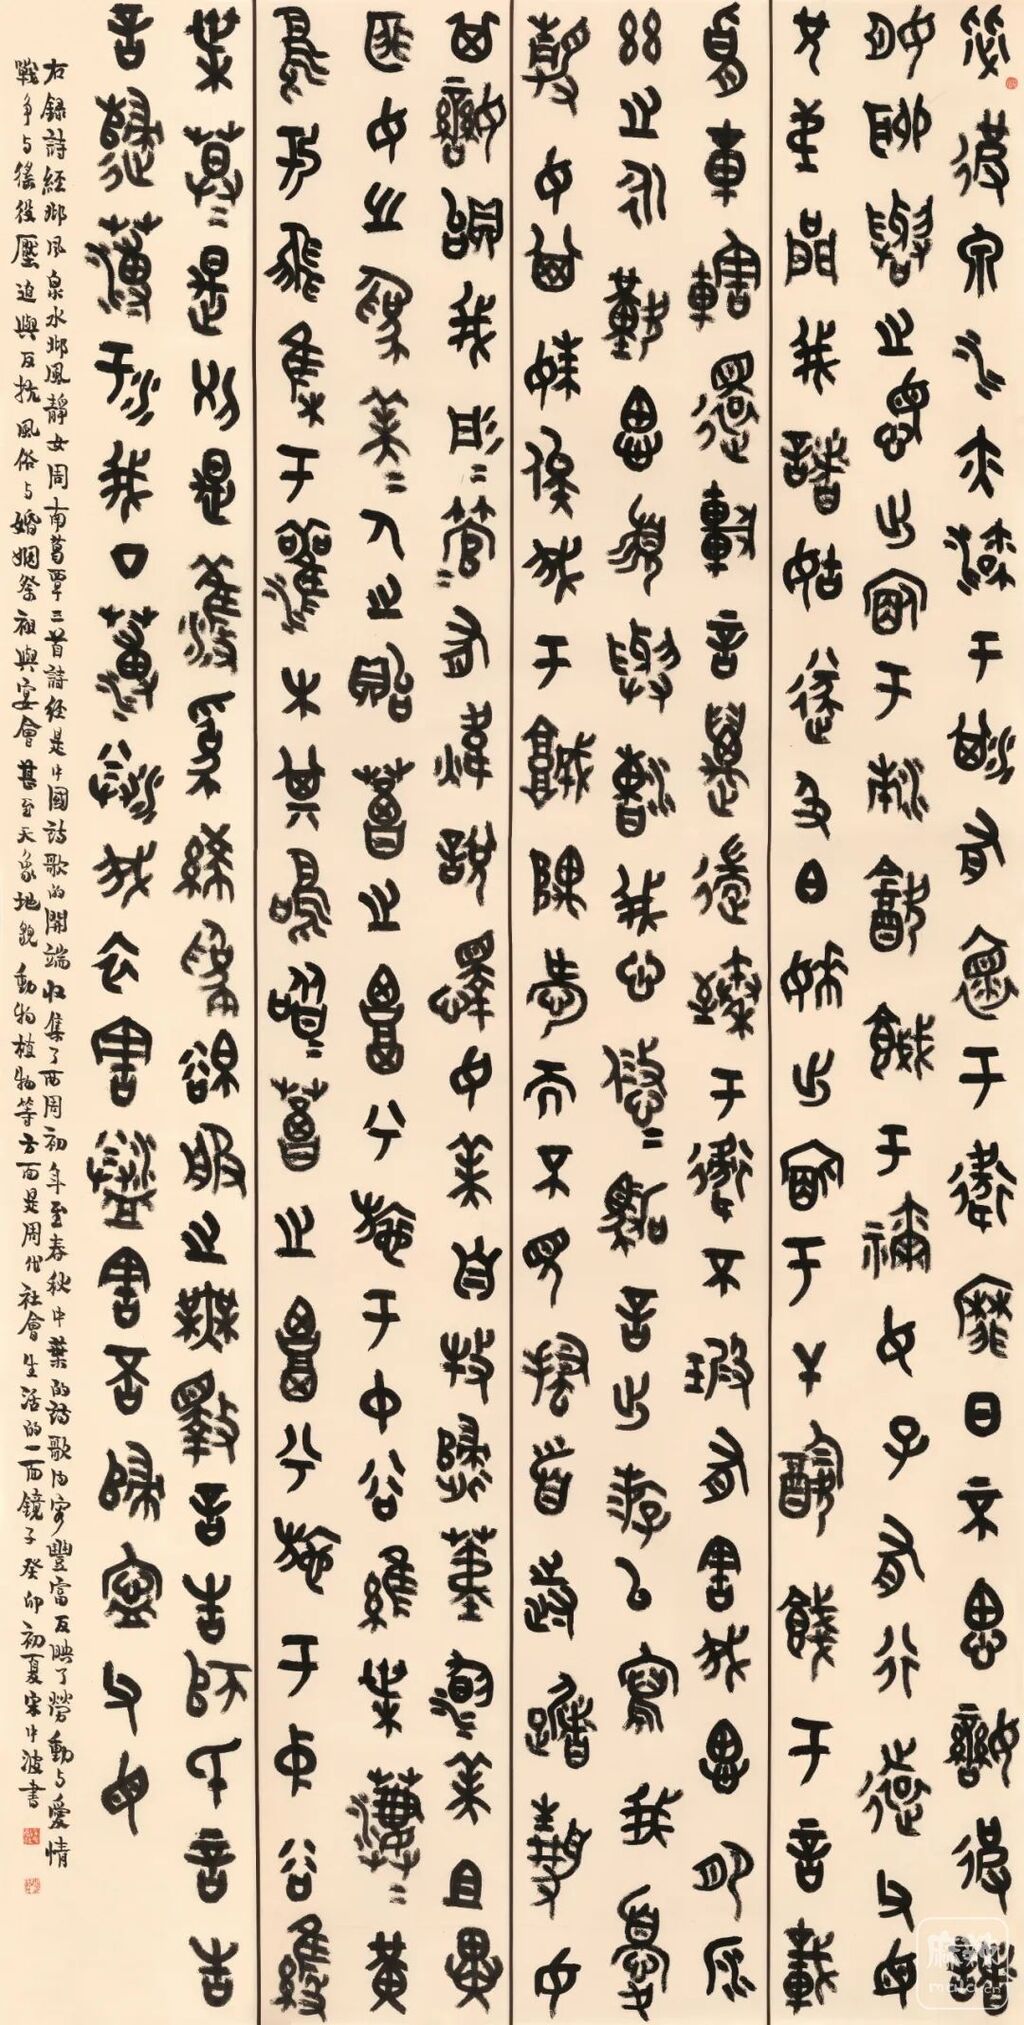 毖彼泉水亦流于淇有懷于衛靡日不思孌彼諸
姬聊與之謀出宿于泲飲餞于禰女子有行遠父母
兄弟問我諸姑遂及伯姊出宿于干飲餞于言載
脂載舝還車言邁遄臻于衛不瑕有害我思肥泉
茲之永歎思須與漕我心悠〻駕言出遊以寫我憂
靜女其姝俟我于城隅愛而不見搔首踟躕靜女
其孌貽我彤〻管〻有煒說懌女美自牧歸荑洵美且異
匪女之為美〻人之貽葛之覃兮施于中谷維葉萋〻黃
鳥于飛集于灌木其鳴喈〻葛之覃兮施于中谷維
葉莫〻是刈是濩為絺為綌服之無斁言告師氏言告
言歸薄污我私薄澣我衣害澣害否歸寧父母
右錄詩經邶风泉水邶風靜女周南葛覃三首詩經是中國詩歌的開端收集了西周初年至春秋中葉的詩歌內容豐富反映了勞動与愛情
戰争与徭役壓迫與反抗風俗与婚姻祭祖與宴會甚至天象地貌動物植物等方面是周代社會生活的一面鏡子癸卯初夏宋中波書
麻辣
mala.cn